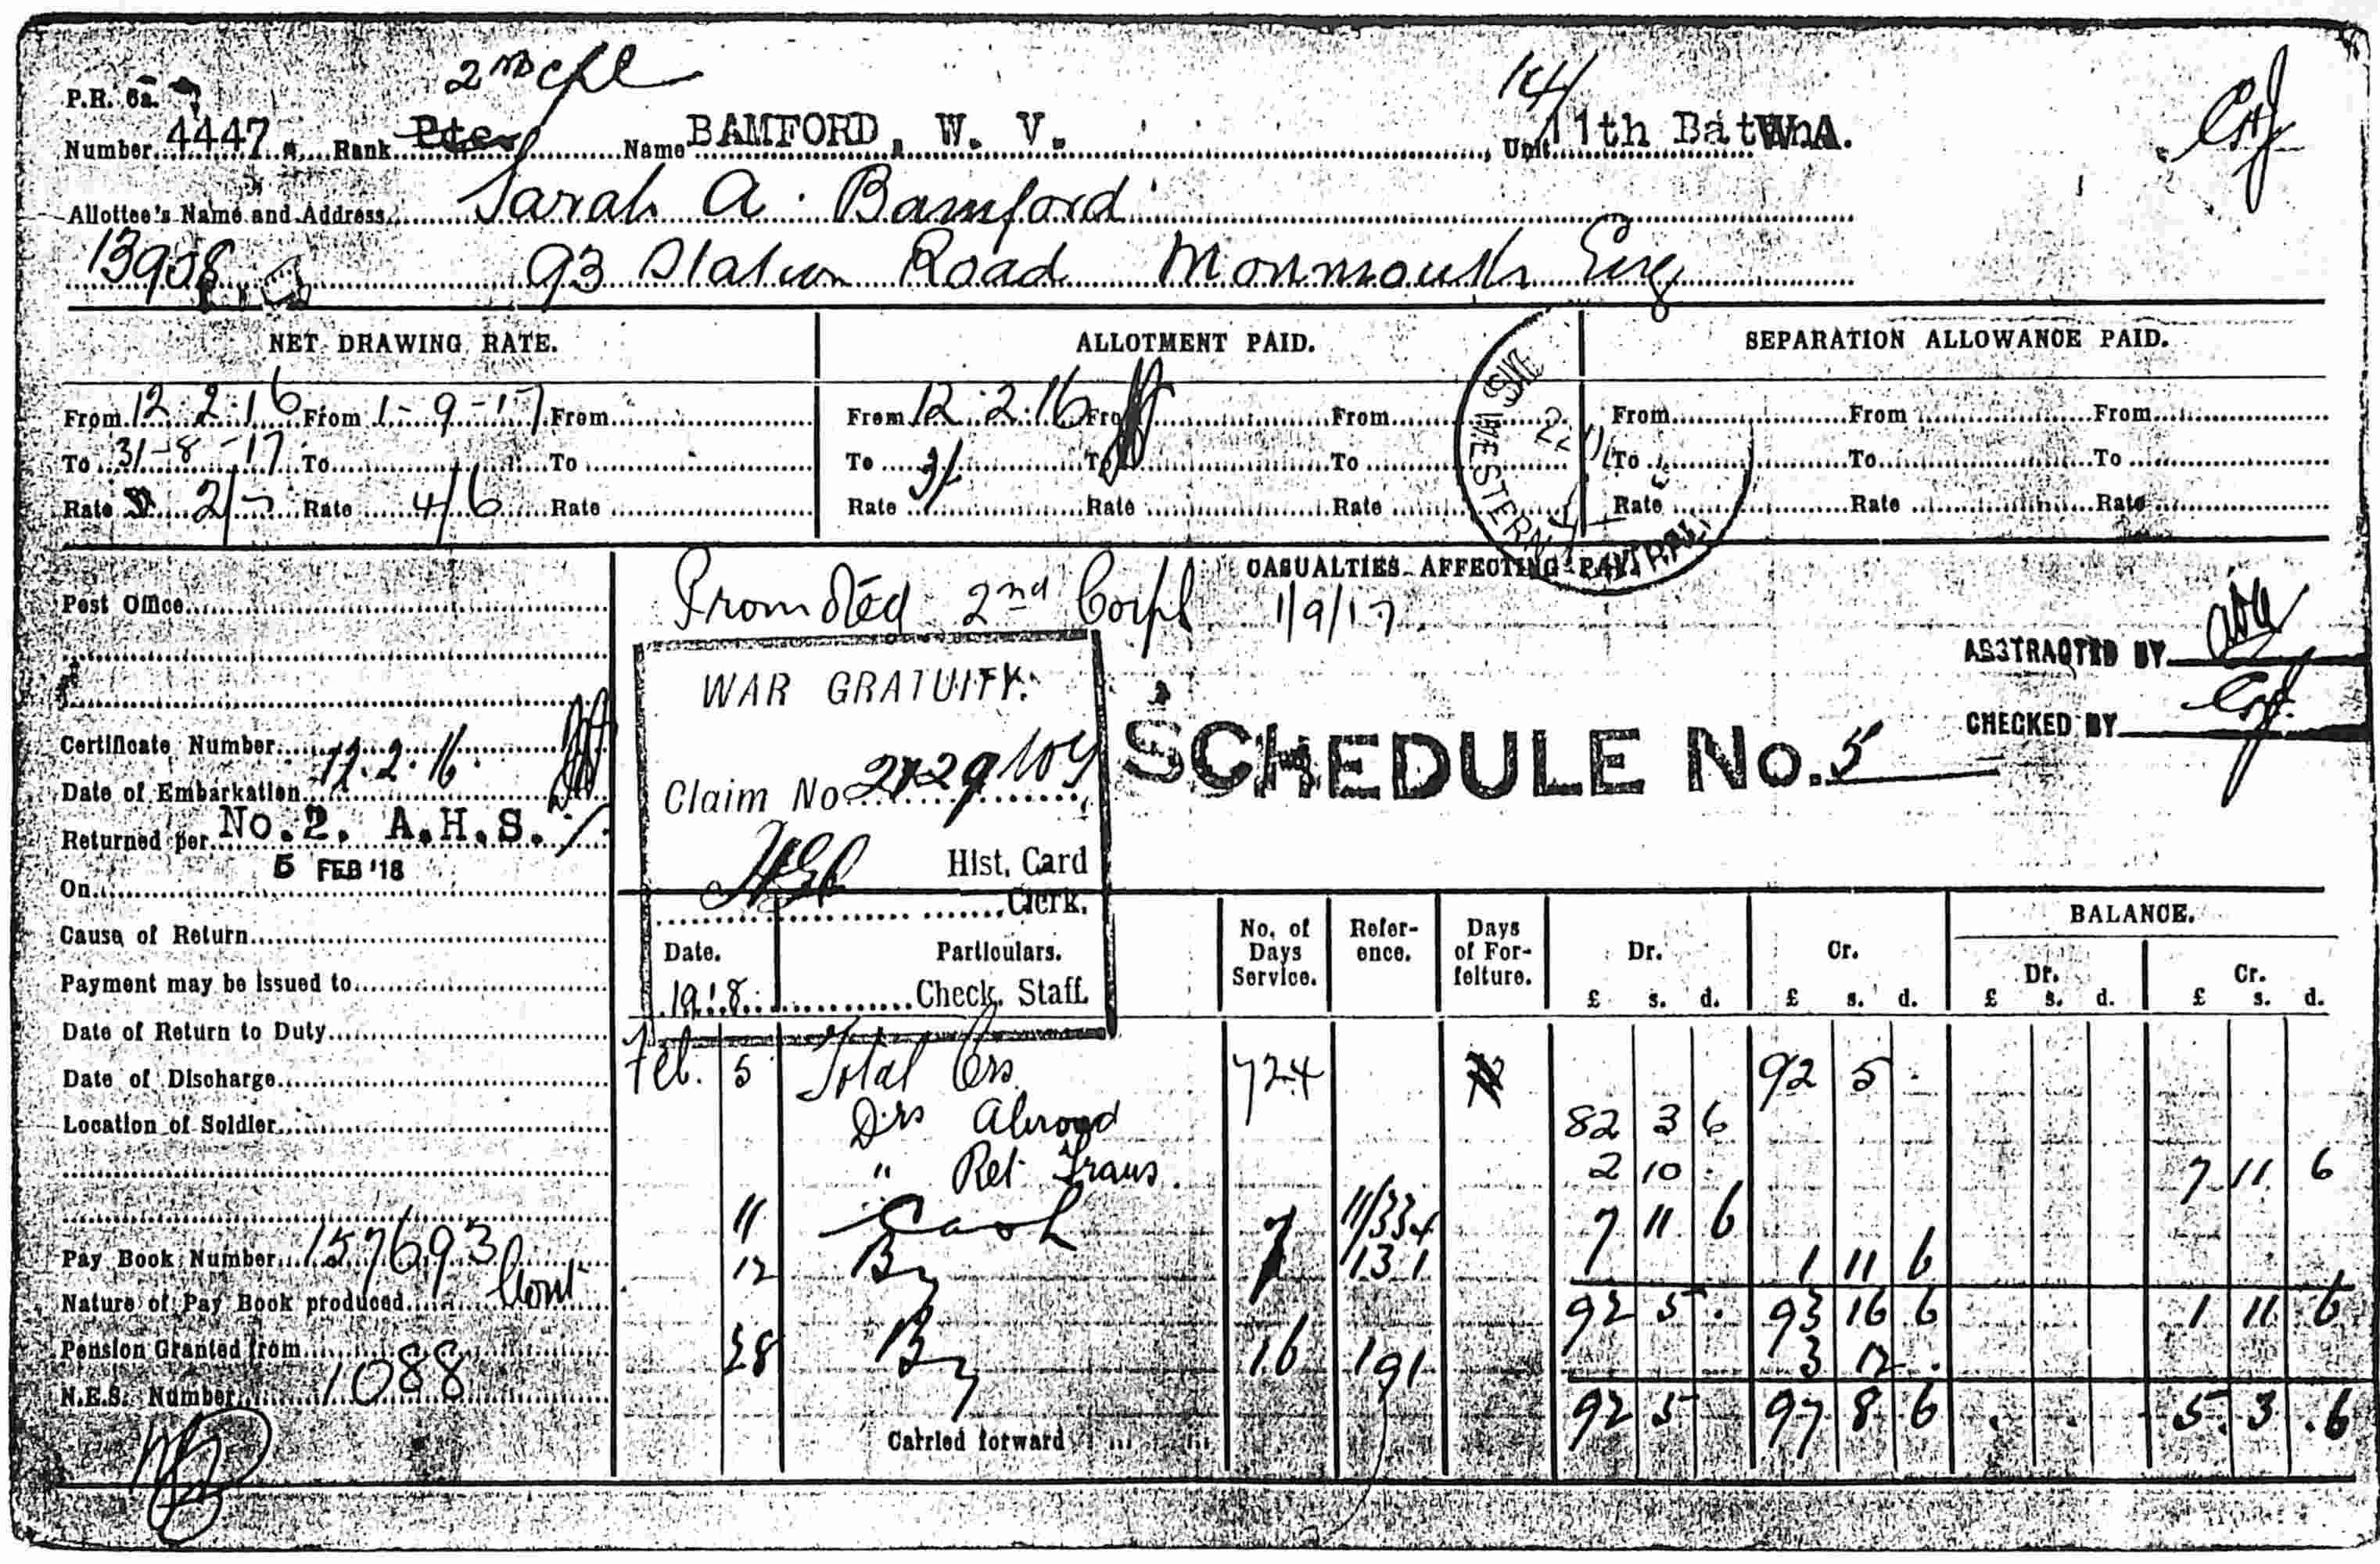 2nd Cpl
P.R. 6a.
Number 4447 Rank Pte Name BAMFORD, W. V. Unit 11th Batt WA.
Allottee's Name and Address Sarah A. Bamford
13908 93 Station Road Monmouth Eng
NET DRAWING RATE. ALLOTMENT PAID. SEPARATION ALLOWANCE PAID.
From 12.2.16 From 1-9-17 From From 12.2.16 From From From From From
To 31-8-17 To To To To To To To To
Rate 2/- Rate 4/6 Rate Rate 3/- Rate Rate Rate Rate Rate
WESTERN
CASUALTIES AFFECTING PAY
Promoted 2nd Corpl 1/9/17
Post Office
ABSTRACTED BY
CHECKED BY
WAR GRATUITY.
Claim No
Hist. Card
Clerk.
Check. Staff.
SCHEDULE No. 5
Certificate Number
Date of Embarkation 12.2.16
Returned per No. 2. A.H.S.
On 5 FEB '18
Cause of Return
Payment may be issued to
Date of Return to Duty
Date of Discharge
Location of Soldier
Pay Book Number 157693
Nature of Pay Book produced Cont
Pension Granted from
N.E.S. Number 1088
Date. Particulars. No. of Days Service. Reference. Days of Forfeiture. Dr. Cr. BALANCE.
Dr. Cr.
£ s. d. £ s. d. £ s. d. £ s. d.
1918
Feb. 5 Total Crs 724 92 5 .
Drs Abroad 82 3 6
" Ret. Trans. 2 10 . 7 11 6
11 Cash 11/334 7 11 6
12 By 7 131 1 11 6
92 5 . 93 16 6 1 11 6
28 By 16 191 3 12 .
Carried forward 92 5 97 8 6 5 3 6